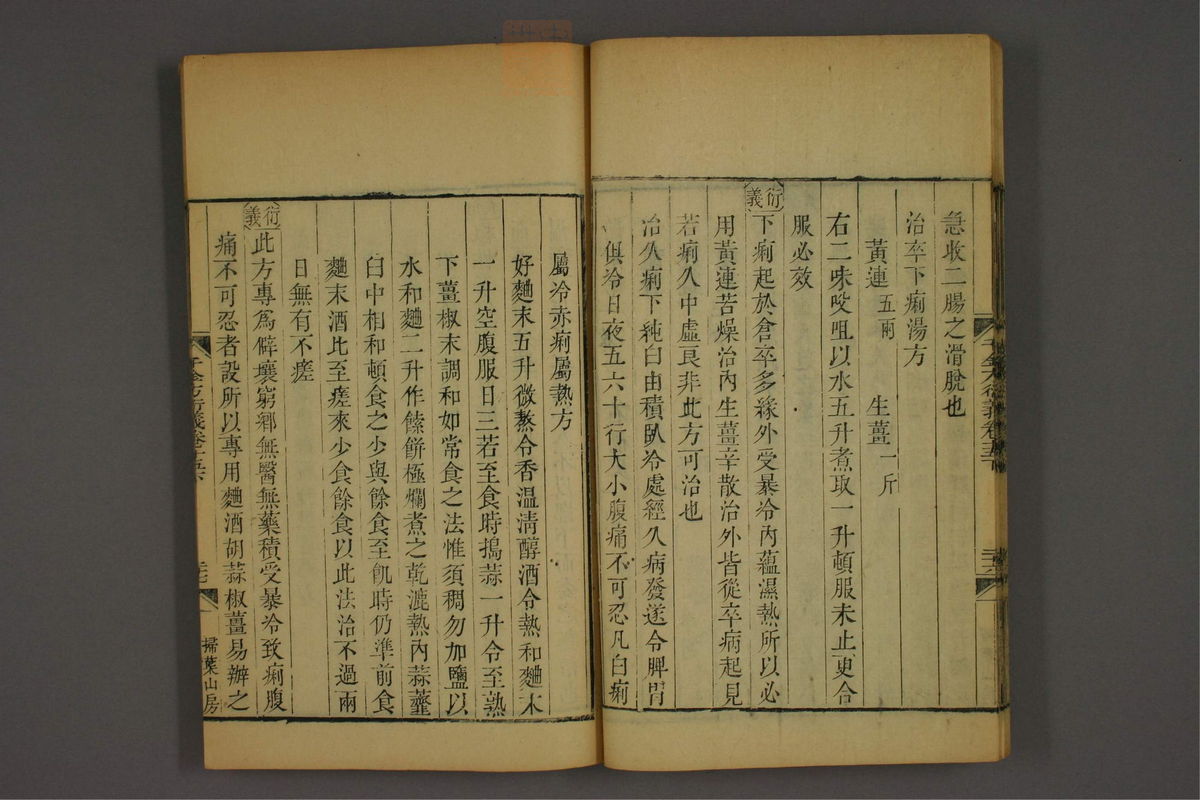 急收二腸之滑脫也
治卒下痢湯方
黃連五兩 生薑一斤
右二味㕮咀以水五升煮取一升頓服未止更合
服必效
衍義下痢起於倉卒多緣外受暴冷內蘊濕熱所以必
用黃連苦燥治內生薑辛散治外皆從卒病起見
若痢久中虛艮非此方可治也
治久痢下純白由積臥冷處經久病發遂令脾胃
俱冷日夜五六十行大小腹痛不可忍凡白痢
屬冷赤痢屬熱方
好麯末五升微熬令香溫清醇酒令熱和麯末
一升空腹服日三若至食時搗蒜一升令至熟
下薑椒末調和如常食之法惟須稠勿加鹽以
水和麯二升作餅極爛煮之乾漉熱內蒜虀
臼中相和頓食之少與餘食至飢時仍準前食
麯末酒比至瘥來少食餘食以此法治不過兩
日無有不瘥
衍義此方專為僻壤窮鄉無醫無藥積受暴冷致痢腹
痛不可忍者設所以專用麯酒胡蒜椒薑易辦之
千金方衍義卷十五下
掃葉山房